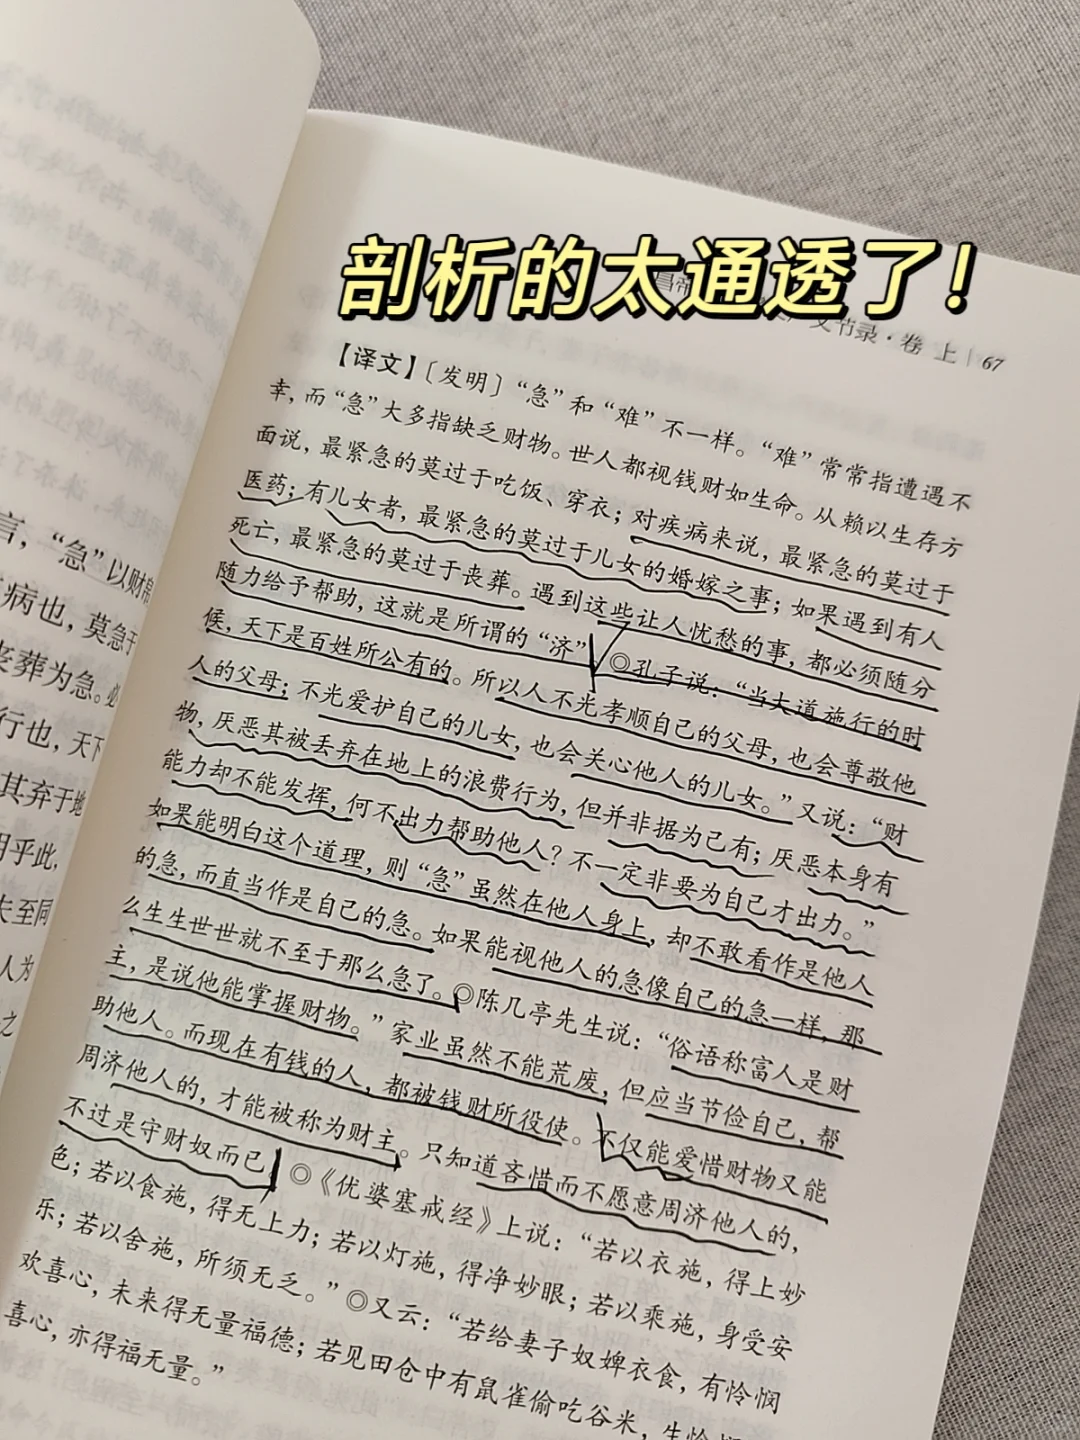 剖析的太通透了！
节录·卷 上 | 67
【译文】〔发明〕“急”和“难”不一样。“难”常常指遭遇不
幸，而“急”大多指缺乏财物。世人都视钱财如生命。从赖以生存方
面说，最紧急的莫过于吃饭、穿衣；对疾病来说，最紧急的莫过于
医药；有儿女者，最紧急的莫过于儿女的婚嫁之事；如果遇到有人
死亡，最紧急的莫过于丧葬。遇到这些让人忧愁的事，都必须随分
随力给予帮助，这就是所谓的“济”。◎孔子说：“当大道施行的时
候，天下是百姓所公有的。所以人不光孝顺自己的父母，也会尊敬他
人的父母；不光爱护自己的儿女，也会关心他人的儿女。”又说：“财
物，厌恶其被丢弃在地上的浪费行为，但并非据为己有；厌恶本身有
能力却不能发挥，何不出力帮助他人？不一定非要为自己才出力。”
如果能明白这个道理，则“急”虽然在他人身上，却不敢看作是他人
的急，而直当作是自己的急。如果能视他人的急像自己的急一样，那
么生生世世就不至于那么急了。◎陈几亭先生说：“俗语称富人是财
主，是说他能掌握财物。”家业虽然不能荒废，但应当节俭自己，帮
助他人。而现在有钱的人，都被钱财所役使。不仅能爱惜财物又能
周济他人的，才能被称为财主。只知道吝惜而不愿意周济他人的，
不过是守财奴而已。◎《优婆塞戒经》上说：“若以衣施，得上妙
色；若以食施，得无上力；若以灯施，得净妙眼；若以乘施，身受安
乐；若以舍施，所须无乏。”◎又云：“若给妻子奴婢衣食，有怜悯
欢喜心，未来得无量福德；若见田仓中有鼠雀偷吃谷米，生怜
喜心，亦得福无量。”
言，“急”以财
病也，莫急于
丧葬为急。
行也，天下
其弃于地
明乎此，
夫至同
人为
之